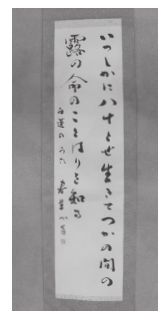 いつしかに八十とせ生きてつかの間の
露の命のことはりを知る
白蓮の